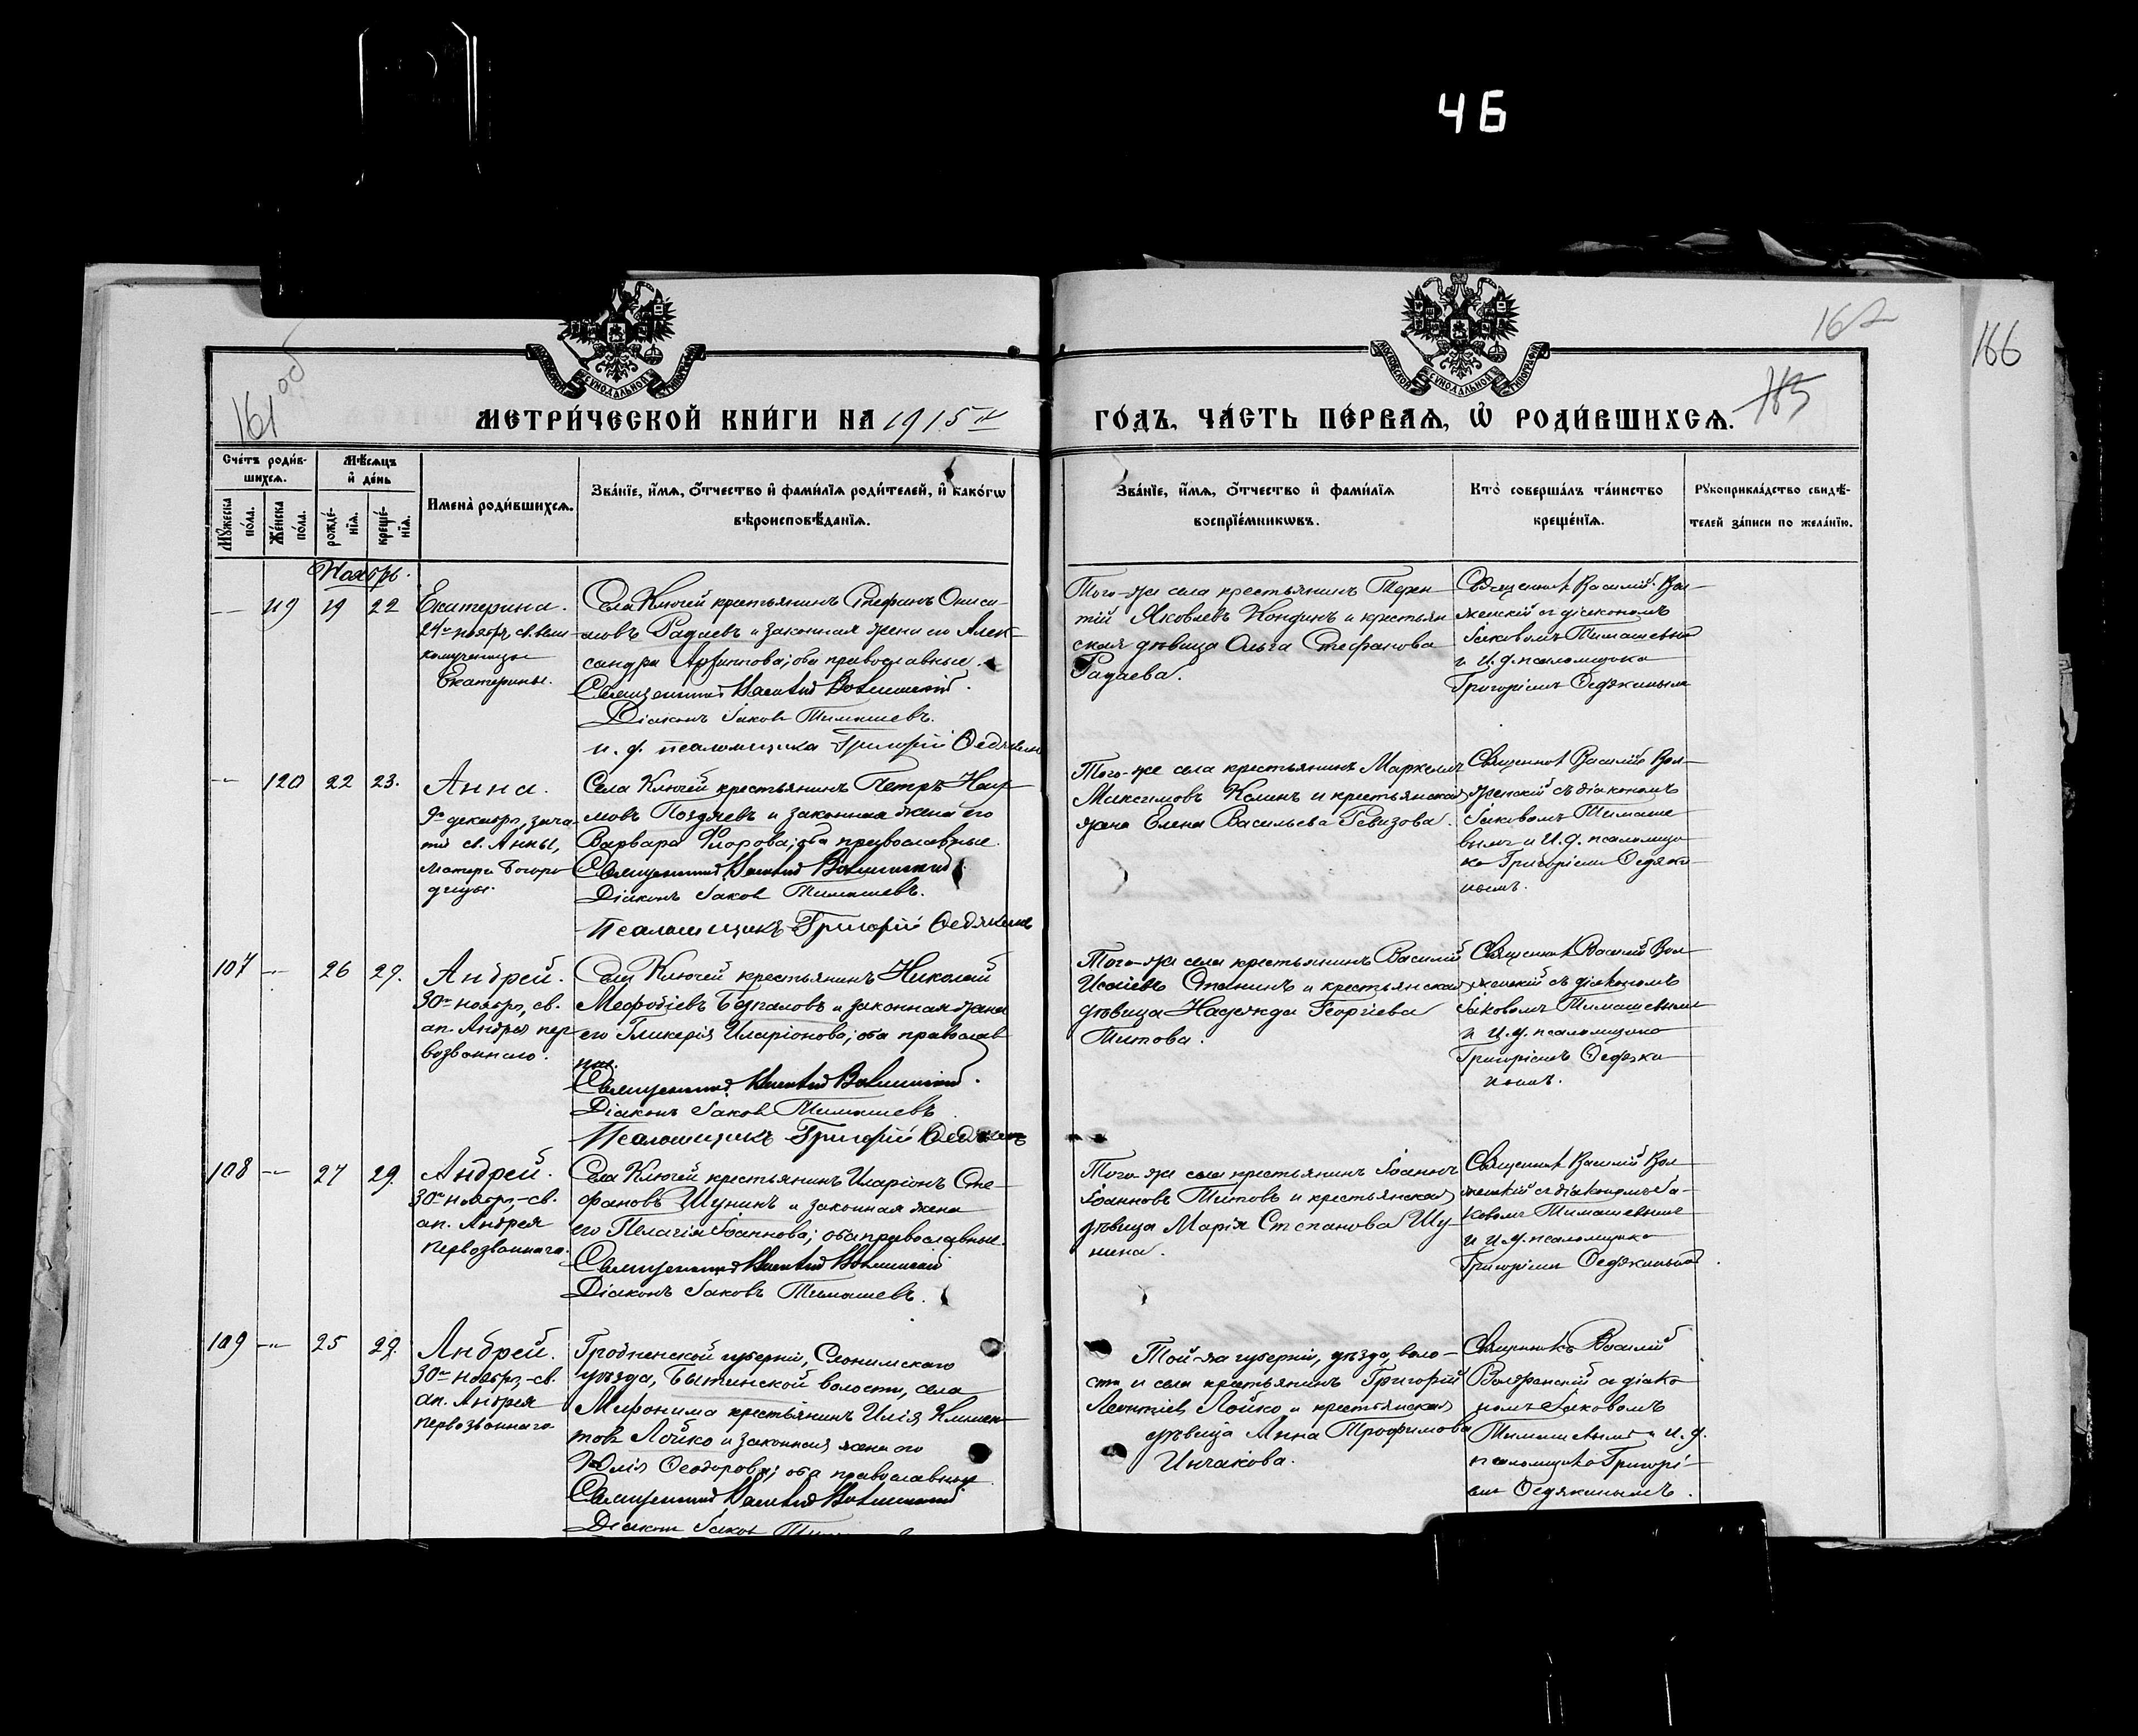 46
162
166
161 об
185
МЕТРИ́ЧЕСКОЙ КНИ́ГИ НА 1915 й
ГО́ДЪ, ЧА́СТЬ ПЕ́РВАЯ, Ѡ҆ РОДИ́ВШИХСѦ.
Сче́тъ роди́в-
шихсѧ.
Мѣ́сѧцъ
и҆ де́нь
Мꙋ́жеска по́ла.
Же́нска по́ла.
рожде́-нїѧ.
креще́-нїѧ.
И҆мена̀ роди́вшихсѧ.
Зва́нїе, и҆́мѧ, ѻ҆́тчество и҆ фами́лїѧ роди́телей, и҆ како́гѡ
вѣроисповѣ́данїѧ.
Зва́нїе, и҆́мѧ, ѻ҆́тчество и҆ фами́лїѧ
воспрїе́мникѡвъ.
Кто̀ соверша́лъ та́инство
креще́нїѧ.
Рꙋкоприкла́дство свидѣ́-
телей за́писи по жела́нїю.
Ноябрь.
— 119 19 22
Екатерина.
24го ноября, св. вели-
комученицы
Екатерины.
Села Ключей крестьянинъ СтефанъОниси-
мовъ Радаевъ и законная жена его Алек-
сандра Архиппова; оба православные.
Священникъ
Діаконъ Іаковъ Тимашевъ.
и. д. псаломщика Григорій Ѳедякинъ
Того-же села крестьянинъ Терен-
тій Яковлевъ Кондинъ и крестьян
ская дѣвица Ольга Стефанова
Радаева.
Священникъ Василій Вол-
женскій съ діакономъ
Іаковомъ Тимашевымъ
и И. д. псаломщика
Григоріемъ Ѳедякинымъ
-"- 120 22 23.
Анна.
9го декабря, зача-
тіе св. Анны,
матери Богоро-
дицы.
Села Ключей крестьянинъ Петръ Нау-
мовъ Поздяевъ и законная жена его
Варвара Флорова; оба православные.
Священникъ
Діаконъ Іаковъ Тимашевъ.
Псаломщикъ Григорій Ѳедякинъ
Того-же села крестьянинъ Маркелъ
Максимовъ Колинъ и крестьянская
жена Елена Васильева Ревизова.
Священникъ Василій Вол-
женскій съ діакономъ
Іаковомъ Тимаше-
вымъ и И. д. псаломщи
ка Григоріемъ Ѳедяки-
нымъ.
107 -"- 26 29.
Андрей.
30го ноября, св.
ап. Андрея пер
возваннаго.
Села Ключей крестьянинъ Николай
Меѳодіевъ Безпаловъ и законная жена
его Гликерія Иларіонова; оба православ
ные.
Священникъ
Діаконъ Іаковъ Тимашевъ
Псаломщикъ Григорій Ѳедякинъ
Того-же села крестьянинъ Василій
Исаіевъ Спанинъ и крестьянская
дѣвица Надежда Георгіева
Титова.
Священникъ Василій Вол
женскій съ діакономъ
Іаковомъ Тимашевымъ
и И. д. псаломщика
Григоріемъ Ѳедяки
нымъ.
108 -"- 27 29.
Андрей.
30го ноября, св.
ап. Андрея
Первозваннаго.
Села Ключей крестьянинъ Иларіонъ Сте-
фановъ Шунинъ и законная жена
его Пелагія Іоаннова; оба православные.
Священникъ
Діаконъ Іаковъ Тимашевъ.
Того-же села крестьянинъ Іоаннъ
Іоанновъ Титовъ и крестьянская
дѣвица Марія Степанова Шу-
нина.
Священникъ Василій Вол
женскій съ діакономъ Іа-
ковомъ Тимашевымъ
и И. д. псаломщика
Григоріемъ Ѳедякинымъ.
109 -"- 25 29.
Андрей.
30го ноября, св.
ап. Андрея
Первозваннаго
Гродненской губерніи, Слонимскаго
уѣзда, Бытинской волости, села
Миронима крестьянинъ Илія Климен-
товъ Лойко и законная жена его
Юлія Ѳеодорова; оба православные.
Священникъ
Діаконъ Іаковъ
Той-же губерніи, уѣзда, воло-
сти и села крестьянинъ Григорій
Леонтіевъ Лойко и крестьянская
дѣвица Анна Трофимова
Инчакова.
Священникъ Василій
Волженскій съ діако
номъ Іаковомъ
Тимашевымъ и И. д.
псаломщика Григорі-
емъ Ѳедякинымъ.